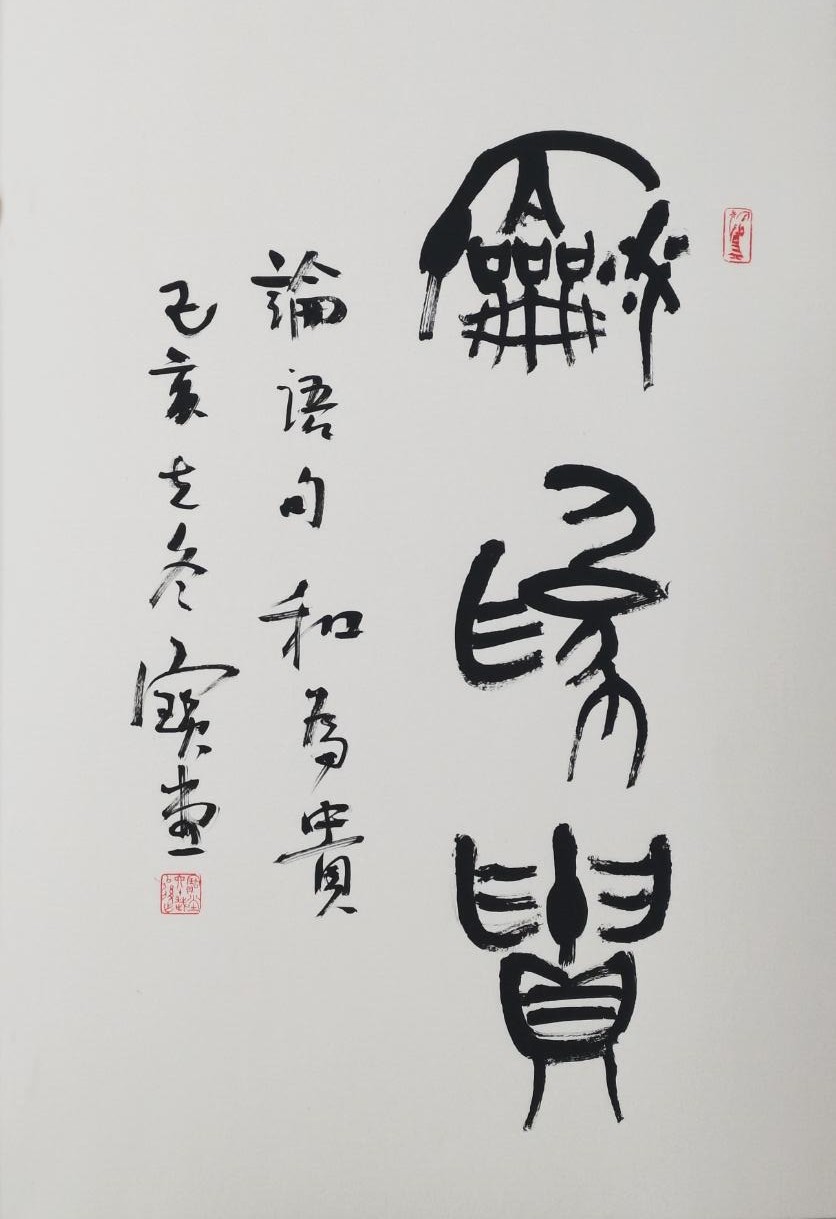 龢為貴
論語句 和為貴
己亥之冬 寶堂